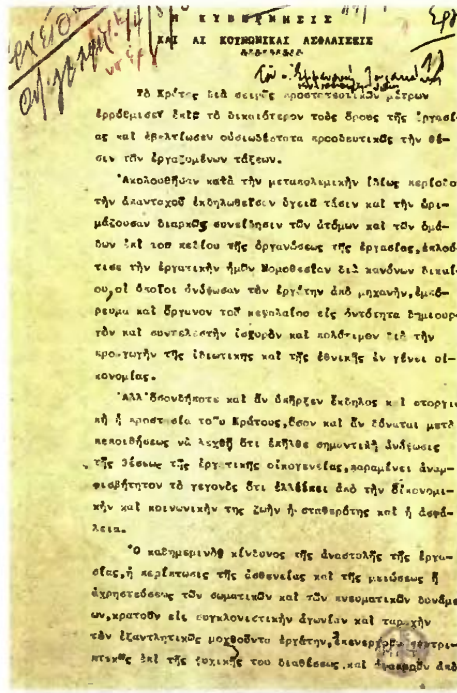 Η ΚΥΒΕΡΝΗΣΙΣ
ΚΑΙ ΑΙ ΚΟΙΝΩΝΙΚΑΙ ΑΣΦΑΛΙΣΕΙΣ
Τὸ Κράτος διὰ σειρᾶς προστατευτικῶν μέτρων
ἐρρύθμισεν ἐπὶ τὸ δικαιότερον τοὺς ὅρους τῆς ἐργασί
ας καὶ ἐβελτίωσεν οὐσιωδέστατα προοδευτικῶς τὴν θέ-
σιν τῶν ἐργαζομένων τάξεων.
Ἀκολουθῆσαν κατὰ τὴν μεταπολεμικὴν ἰδίως περίοδον
τὴν ἁπανταχοῦ ἐκδηλωθεῖσαν ὑγειᾶ τάσιν καὶ τὴν ὡρι-
μάζουσαν διαρκῶς συνείδησιν τῶν ἀτόμων καὶ τῶν ὁμά-
δων ἐπὶ τοῦ πεδίου τῆς ὀργανώσεως τῆς ἐργασίας, ἐπλού-
τισε τὴν ἐργατικὴν ἡμῶν Νομοθεσίαν διὰ κανόνων δικαί-
ου, οἱ ὁποῖοι ἀνύψωσαν τὸν ἐργάτην ἀπὸ μηχανήν, ἐμπό-
ρευμα καὶ ὄργανον τοῦ κεφαλαίου εἰς ὀντότητα δημιουρ-
γὸν καὶ συντελεστὴν ἰσχυρὸν καὶ πολύτιμον διὰ τὴν
προαγωγὴν τῆς ἰδιωτικῆς καὶ τῆς ἐθνικῆς ἐν γένει οἰ-
κονομίας.
Ἀλλ' ὅσονδήποτε καὶ ἂν ὑπῆρξεν ἔκδηλος καὶ στοργι-
κὴ ἡ προστασία τοῦ Κράτους, ὅσον καὶ ἂν δύναται μετὰ
πεποιθήσεως νὰ λεχθῇ ὅτι ἐπῆλθε σημαντικὴ ἀνύψωσις
τῆς θέσεως τῆς ἐργατικῆς οἰκογενείας, παραμένει ἀναμ-
φισβήτητον τὸ γεγονὸς ὅτι ἐλλείπει ἀπὸ τὴν οἰκονομι-
κὴν καὶ κοινωνικήν της ζωὴν ἡ σταθερότης καὶ ἡ ἀσφά-
λεια.
Ὁ καθημερινὸς κίνδυνος τῆς ἀναστολῆς τῆς ἐργα-
σίας, ἡ περίπτωσις τῆς ἀσθενείας καὶ τῆς μειώσεως ἢ
ἀχρηστεύσεως τῶν σωματικῶν καὶ τῶν πνευματικῶν δυνάμε-
ων, κρατοῦν εἰς συγκλονιστικὴν ἀγωνίαν καὶ ταραχὴν
τὸν ἐξαντλητικῶς μοχθοῦντα ἐργάτην, ἐπενεργοῦν συντρι-
πτικῶς ἐπὶ τῆς ψυχικῆς του διαθέσεως καὶ ἀπὸ